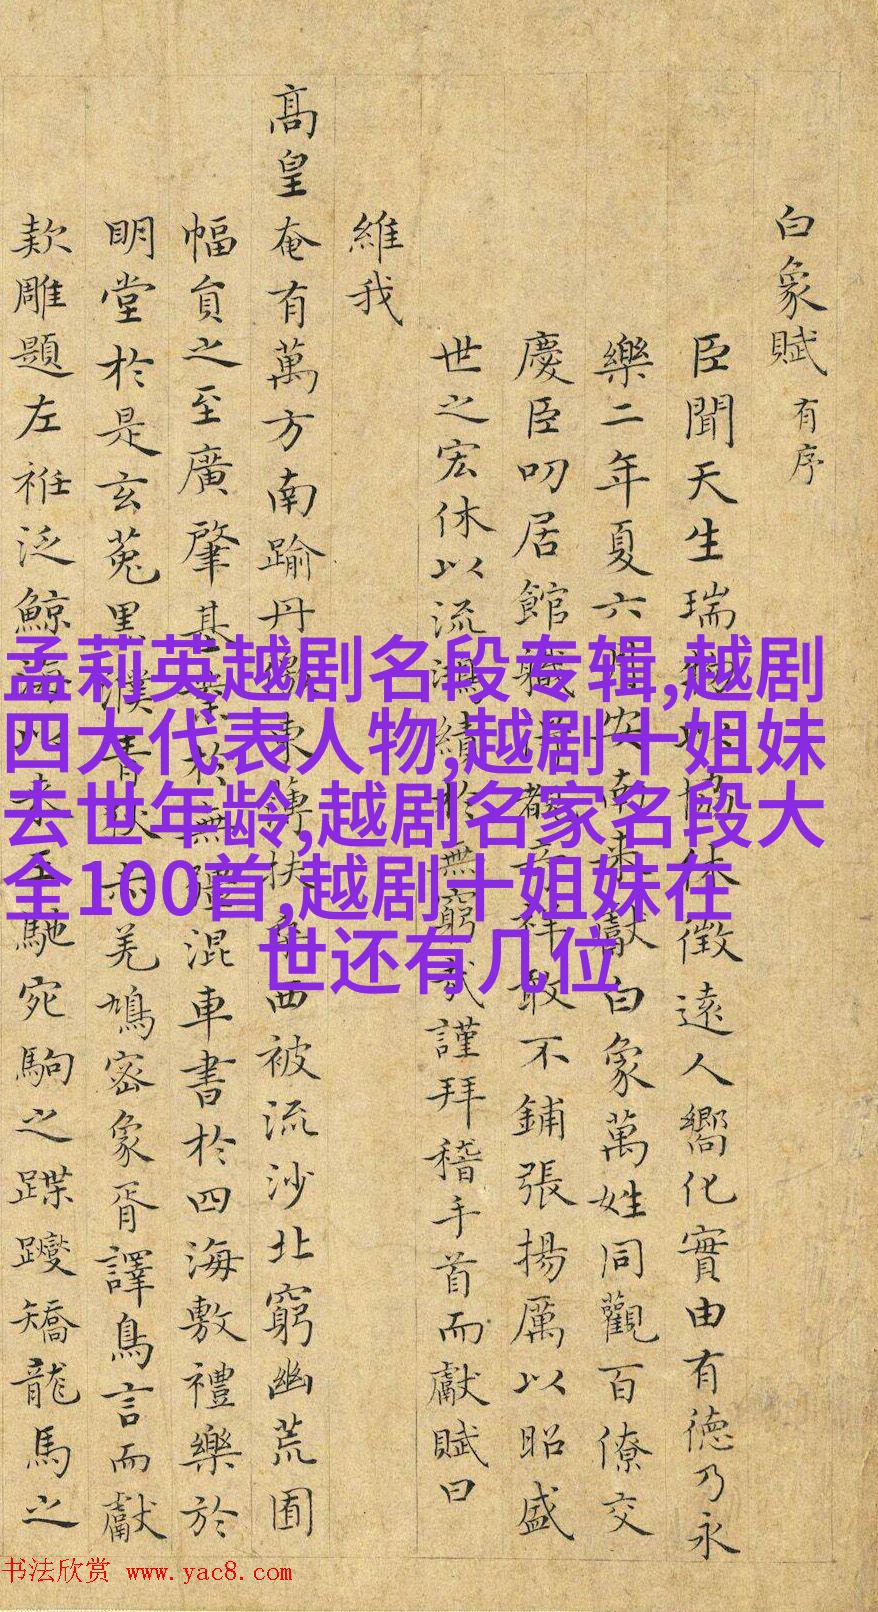 白象賦 有序
臣聞天生瑞物以協休徵遠人嚮化實由有德乃永
樂二年夏六月安南來獻白象萬姓同觀百僚交
慶臣叨居館職詳覩奇祥敢不鋪張揚厲以昭盛
世之宏休以流鴻績於無窮哉謹拜稽手首而獻賦曰
維我
髙皇奄有萬方南踰丹徼東薄扶桒西被流沙北窮幽荒囿
幅員之至廣肇基於無疆混車書於四海敷禮樂於
明堂於是玄菟黑濮青狄赤羌鳩密象胥譯鳥言而獻
欵雕題左袵泛鯨海以来王馳宛駒之蹀躞矯龍馬之
孟莉英越剧名段专辑,越剧
四大代表人物,越剧十姐妹
去世年龄,越剧名家名段大
全100首,越剧十姐妹在
世还有几位
书法欣赏 www.yac8.com